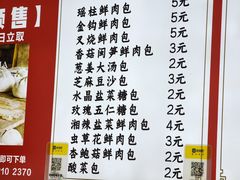 预售
日立取
即可下单
10 2370
瑶柱鲜肉包 5元
金钩鲜肉包 5元
叉烧鲜肉包 5元
香菇间笋鲜肉包 3元
葱姜大汤包 2元
芝麻豆沙包 2元
水晶盐菜糖包 2元
玫瑰五仁糖包 2元
湘辣盐菜鲜肉包 4元
虫草花鲜肉包 3元
杏鲍菇鲜肉包 2元
酸菜包 2元